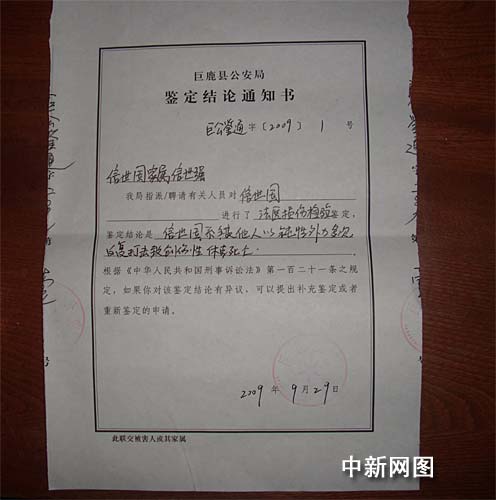 巨鹿县公安局
鉴定结论通知书
巨公鉴通字〔2009〕1号
信世国家属信世强
我局指派/聘请有关人员对信世国
进行了法医损伤检验鉴定。
鉴定结论是信世国系被他人以钝性外力多次
反复打击致创伤性休克死亡.
根据《中华人民共和国刑事诉讼法》第一百二十一条之规
定,如果你对该鉴定结论有异议,可以提出补充鉴定或者
重新鉴定的申请。
2009年9月29日
此联交被害人或其家属
中新网图